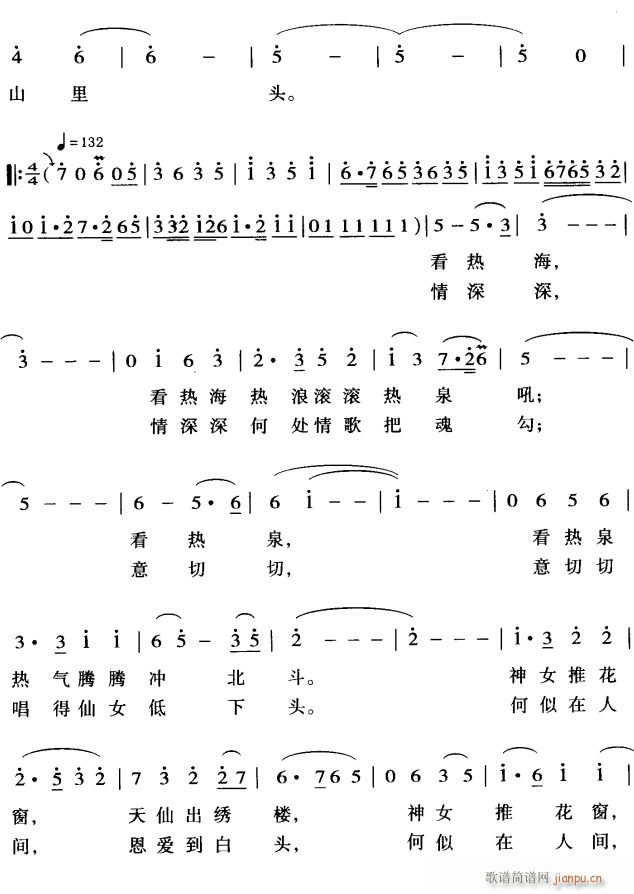 4 6 | 6 - | 5 - | 5 - | 5 0 |
山里 头。
♩=132
4/4 ( 7 0 6 05 | 3 6 3 5 | i 3 5 i | 6·765 3635 | i35i 676532 |
i0i·7·265 | 332 i26i·2ii | 01 11 11 11 ) | 5 - 5·3 | 3 - - -
看热海,
情深深,
3 - - - | 0 i 6 3 | 2·3 5 2 | i 3 7·26 | 5 - - -
看热海热浪滚滚热泉吼;
情深深何处情歌把魂勾;
5 - - - | 6 - 5·6 | 6 i - - | i - - - | 0 6 5 6
看热泉, 看热泉
意切切, 意切切
3·3 i i | 6 5 - 35 | 2 - - - | 2 - - - | i·3 2 2
热气腾腾冲北斗。 神女推花
唱得仙女低下头。 何似在人
2·5 3 2 | 7 3 2 27 | 6·765 | 0 6 3 5 | i·6 i i | i
窗, 天仙出绣楼, 神女推花窗,
间, 恩爱到白头, 何似在人间,
歌谱简谱网
jianpu.cn